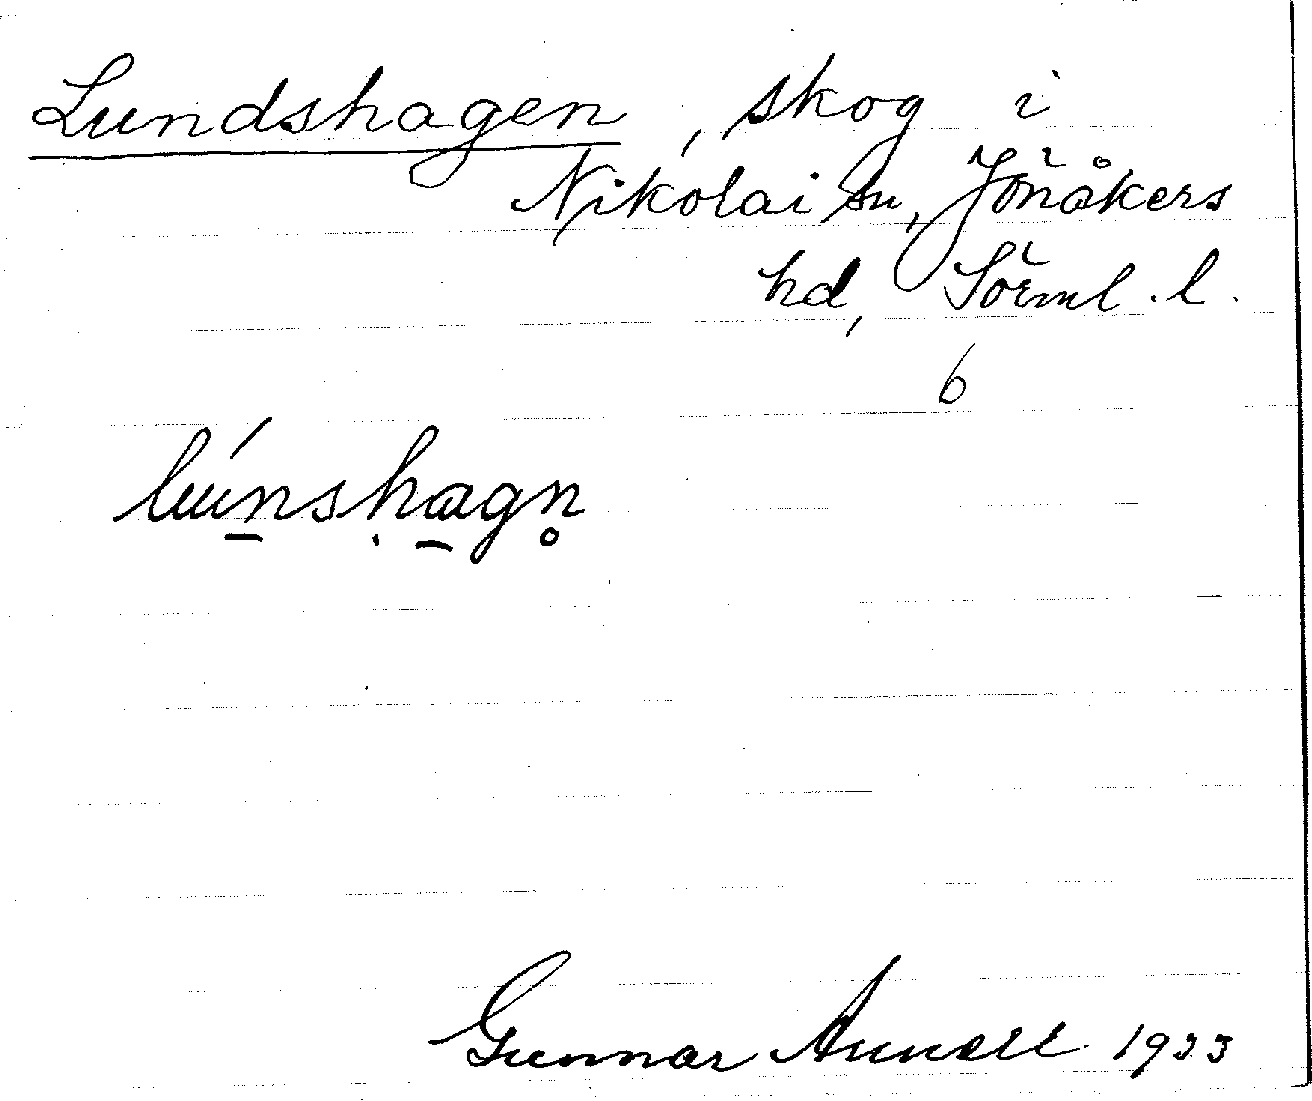 Lundshagen, skog i
Nikolai sn, Jönåkers
hd, Sörml. l.
6
lúnshagn̥
Gunnar 1933